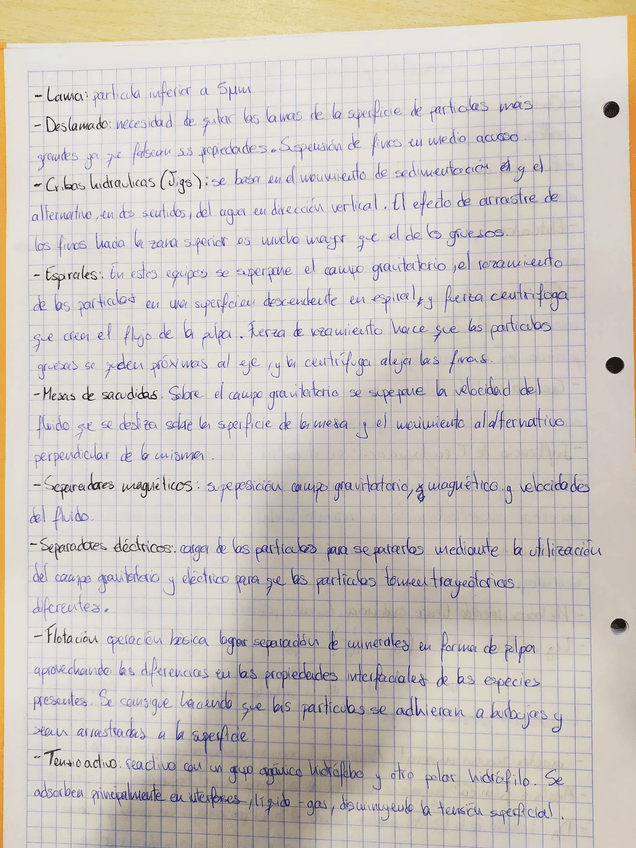 - Lama: partícula inferior a 5μm
- Deslamado: necesidad de quitar las lamas de la superficie de partículas más
grandes ya que falsean sus propiedades. Suspensión de finos en medio acuoso
- Cribas hidraulicas (Jigs): se basa en el movimiento de sedimentación y el
alternativo, en dos sentidos, del agua en dirección vertical. El efecto de arrastre de
los finos hacia la zona superior es mucho mayor que el de los gruesos.
- Espirales: En estos equipos se superpone el campo gravitatorio, el rozamiento
de las partículas en una superficie descendente en espiral, y fuerza centrífuga
que crea el flujo de la pulpa. Fuerza de rozamiento hace que las partículas
gruesas se queden próximas al eje, y la centrífuga aleja las finas.
- Mesas de sacudidas. Sobre el campo gravitatorio se superpone la velocidad del
fluido que se desliza sobre la superficie de la mesa y el movimiento alalternativo
perpendicular de la misma.
- Separadores magnéticos: supeposición campo gravitatorio, magnético y velocidades
del fluido.
- Separadores eléctricos. carga de las partículas para separarlas mediante la utilización
del campo gravitatorio y eléctrico para que las partículas tomen trayectorias
diferentes.
- Flotación operación básica lograr separación de minerales en forma de pulpa
aprovechando las diferencias en las propiedades interfaciales de las especies
presentes. Se consigue haciendo que las partículas se adhieran a burbujas y
sean arrastradas a la superficie.
- Tensioactivo. reactivo con un grupo orgánico hidrófobo y otro polar hidrófilo. Se
adsorben principalmente en interfases, líquido-gas, disminuyendo la tensión superficial.